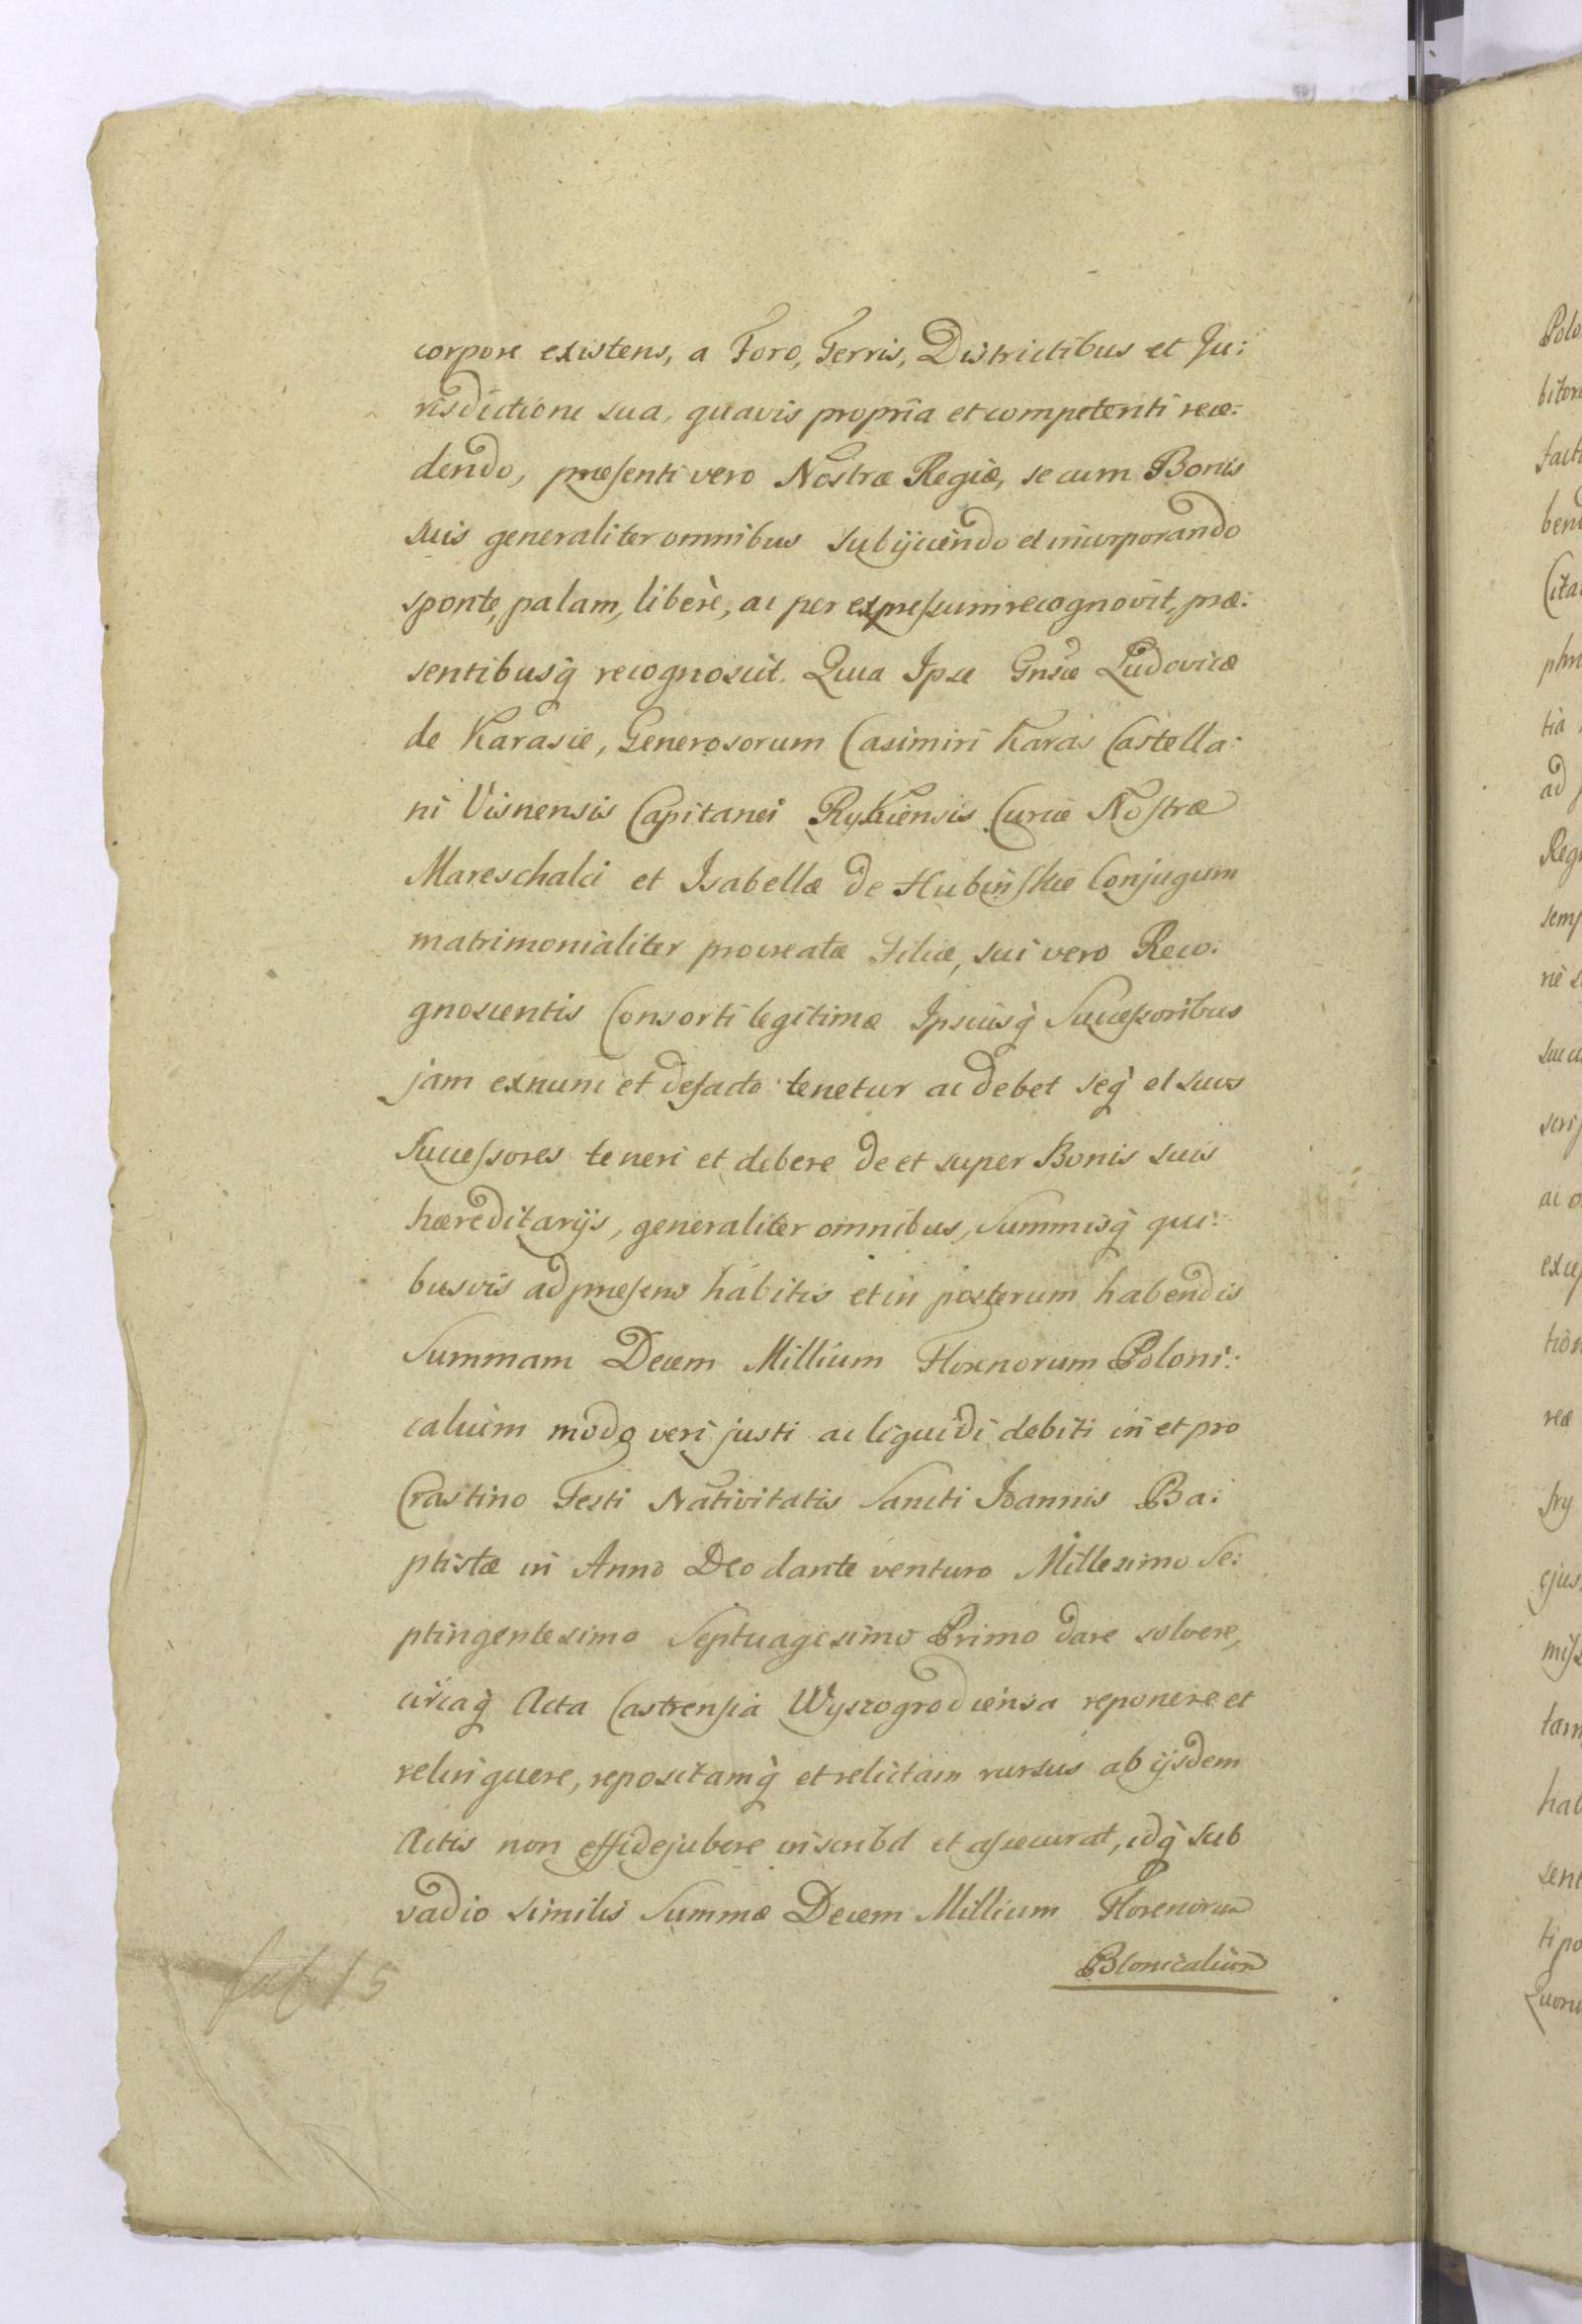 corpore existens, a Foro, Terris, Districtibus et Ju:
risdictione sua, quavis propria et competenti rece:
dendo, præsenti vero Nostræ Regiæ, se cum Bonis
suis generaliter omnibus subijciendo et incorporando
sponte, palam, liberè, ac per expressum recognovit, præ:
sentibusq̀ recognoscit. Quia Ipse Gnsæ Ludovicæ
de Karasie, Generosorum Casimiri Karaś Castella:
ni Visnensis Capitanei Rykiensis Curiæ Nostræ
Mareschalci et Isabellæ de Hubińskie Conjugum
matrimonialiter procreatæ Filiæ, sui vero Reco:
gnoscentis Consorti legitimæ Ipsiusq̀ Successoribus
jam exnunc et defacto tenetur ac debet seq̀ et suos
Successores teneri et debere de et super Bonis suis
hæreditarijs, generaliter omnibus, Summisq̀ qui:
busvis ad præsens habitis et in posterum habendis
Summam Decem Millium Florenorum Poloni:
calium modo veri justi ac liquidi debiti in et pro
Crastino Festi Nativitatis Sancti Joannis Ba:
ptistæ in Anno Deo dante venturo Millesimo Se:
ptingentesimo Septuagesimo Primo dare solvere,
circaq̀ Acta Castrensia Wyszogrodiensa reponere et
relinquere, repositamq̀ et relictam rursus ab ijsdem
Actis non effidejubere inscribit et assecurat, idq̀ sub
vadio similis Summæ Decem Millium Florenorum
Plonicalium